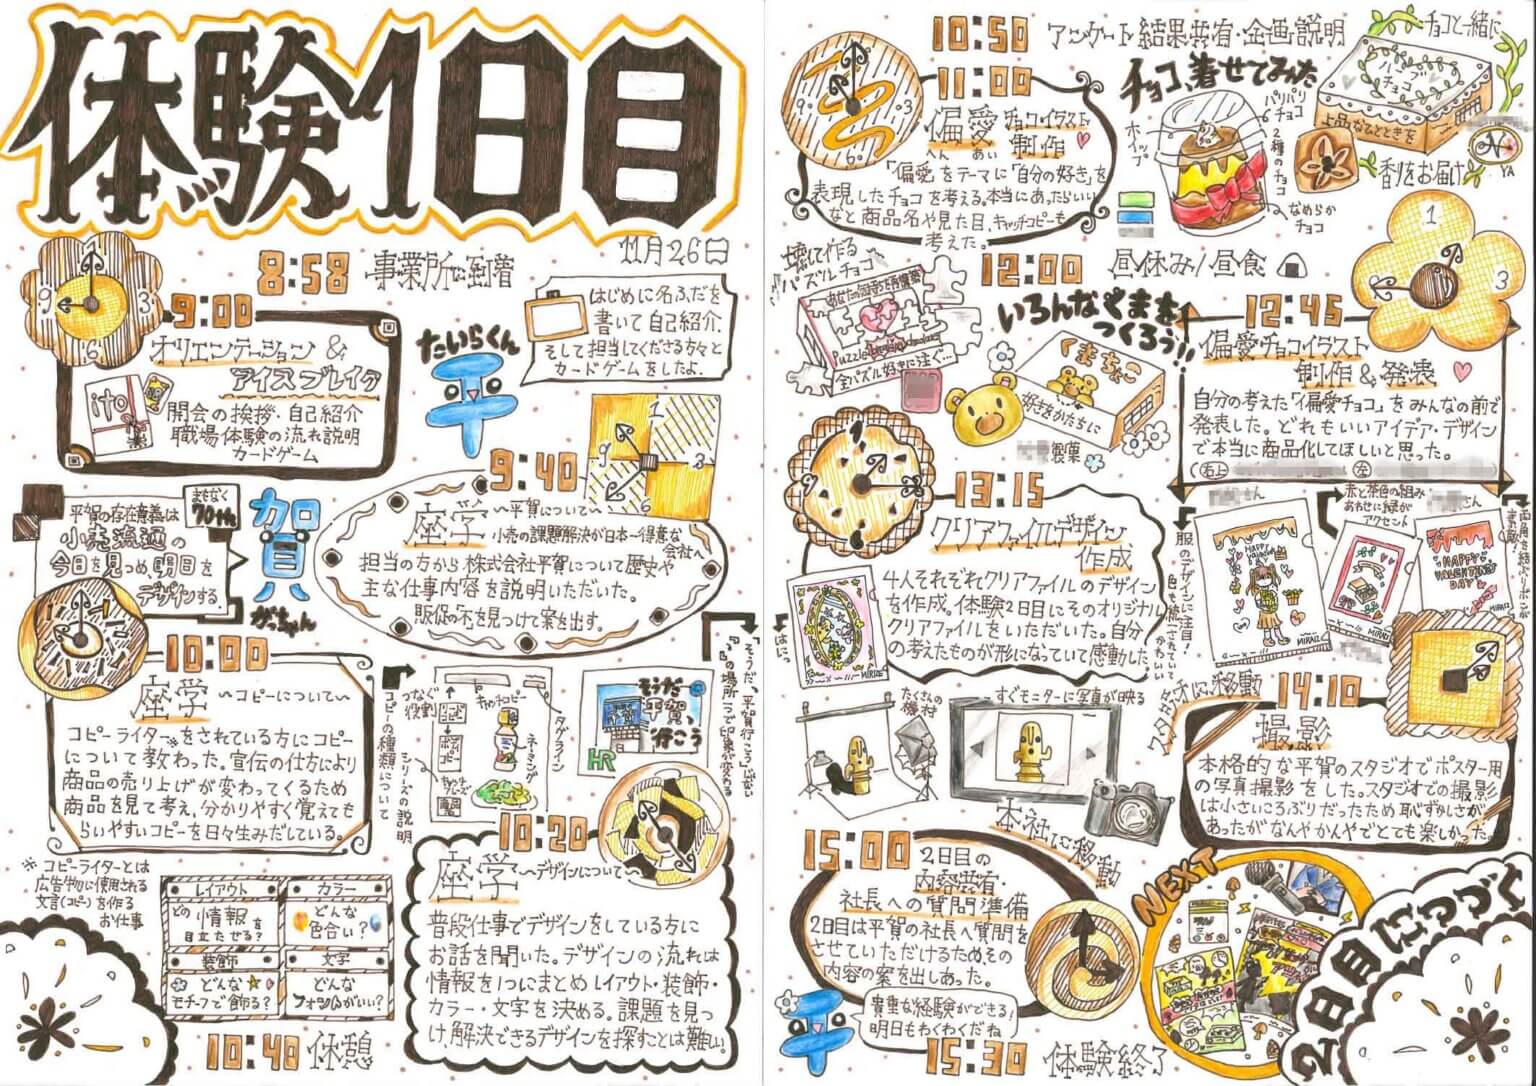 体験1日目
11月26日
8:58 事業所に到着
9:00
オリエンテーション &
アイスブレイク
ito
開会の挨拶・自己紹介
職場体験の流れ説明
カードゲーム
たいらくん
平
はじめに名ふだを
書いて自己紹介.
そして担当してくださる方々と
カードゲームをしたよ.
9:40
座学 〜平賀について〜
小売の課題解決が日本一得意な
会社へ
担当の方から株式会社平賀について歴史や
主な仕事内容を説明いただいた。
販促の不を見つけて案を出す。
まもなく
70th
平賀の存在意義は
小売流通の
今日を見つめ明日を
デザインする.
賀
がっちゃん
10:00
座学 〜コピーについて〜
コピーライター※をされている方にコピー
について教わった。宣伝の仕方により
商品の売り上げが変わってくるため
商品を見て考え、分かりやすく覚えても
らいやすいコピーを日々生みだしている。
※コピーライターとは
広告物に使用される
文言(コピー)を作る
お仕事
コピーの種類について
つなぐ
役割
キャッチコピー
タグライン
ネーミング
シリーズの説明
そうだ
平賀、
行こう
HR
「そうだ、平賀行こう」じゃない
「、」の場所1つで印象が変わる
10:20
座学 〜デザインについて〜
普段仕事でデザインをしている方に
お話を聞いた。デザインの流れは
情報を1つにまとめ レイアウト・装飾・
カラー・文字を決める。課題を見つ
け,解決できるデザインを探すことは難しい。
レイアウト
どの情報を
目立たせる?
カラー
どんな
色合い?
装飾
どんな
モチーフで飾る?
文字
どんな
フォントがいい?
10:40 休憩
10:50 アンケート結果共有・企画説明
11:00
偏愛チョコイラスト
へんあい
制作
「偏愛」をテーマに「自分の好き」を
表現したチョコを考える.本当にあったらいい
なと商品名や見た目、キャッチコピーも
考えた。
チョコ、着せてみた
ホイップ
パリパリ
チョコ
2種のチョコ
なめらか
チョコ
チョコと一緒に
ハーブ
チョコ
上品なひとときを
香りをお届け
YA
壊して作る
パズルチョコ
あなたの気持ちを再構築
全パズル好きに注ぐ…
12:00 昼休み/昼食
いろんなくまを
つくろう!!
くまちょこ
好きをかたちに
製菓
12:45
偏愛チョコイラスト
制作&発表
自分の考えた「偏愛チョコ」をみんなの前で
発表した。どれもいいアイデア・デザイン
で本当に商品化してほしいと思った。
13:15
クリアファイルデザイン
作成
4人それぞれクリアファイルのデザイン
を作成。体験2日目にそのオリジナル
クリアファイルをいただいた。自分
の考えたものが形になっていて感動した。
さん
服のデザインに注目!
色も統一されていて
かわいい
赤と茶色の組み
あわせに緑が
アクセント
さん
HAPPY
VALENTINE
DAY
MIRAIZ
スタジオに移動
14:10
撮影
本格的な平賀のスタジオでポスター用
の写真撮影をした。スタジオでの撮影
は小さいころぶりだったため恥ずかしさが
あったがなんやかんやでとても楽しかった。
たくさんの
機材
すぐモニターに写真が映る
本社に移動
15:00
2日目の
内容共有・
社長への質問準備
2日目は平賀の社長へ質問を
させていただけるため,その
内容の案を出しあった。
平
貴重な経験ができる!
明日もわくわくだね
15:30 体験終了
NEXT
2日目につづく